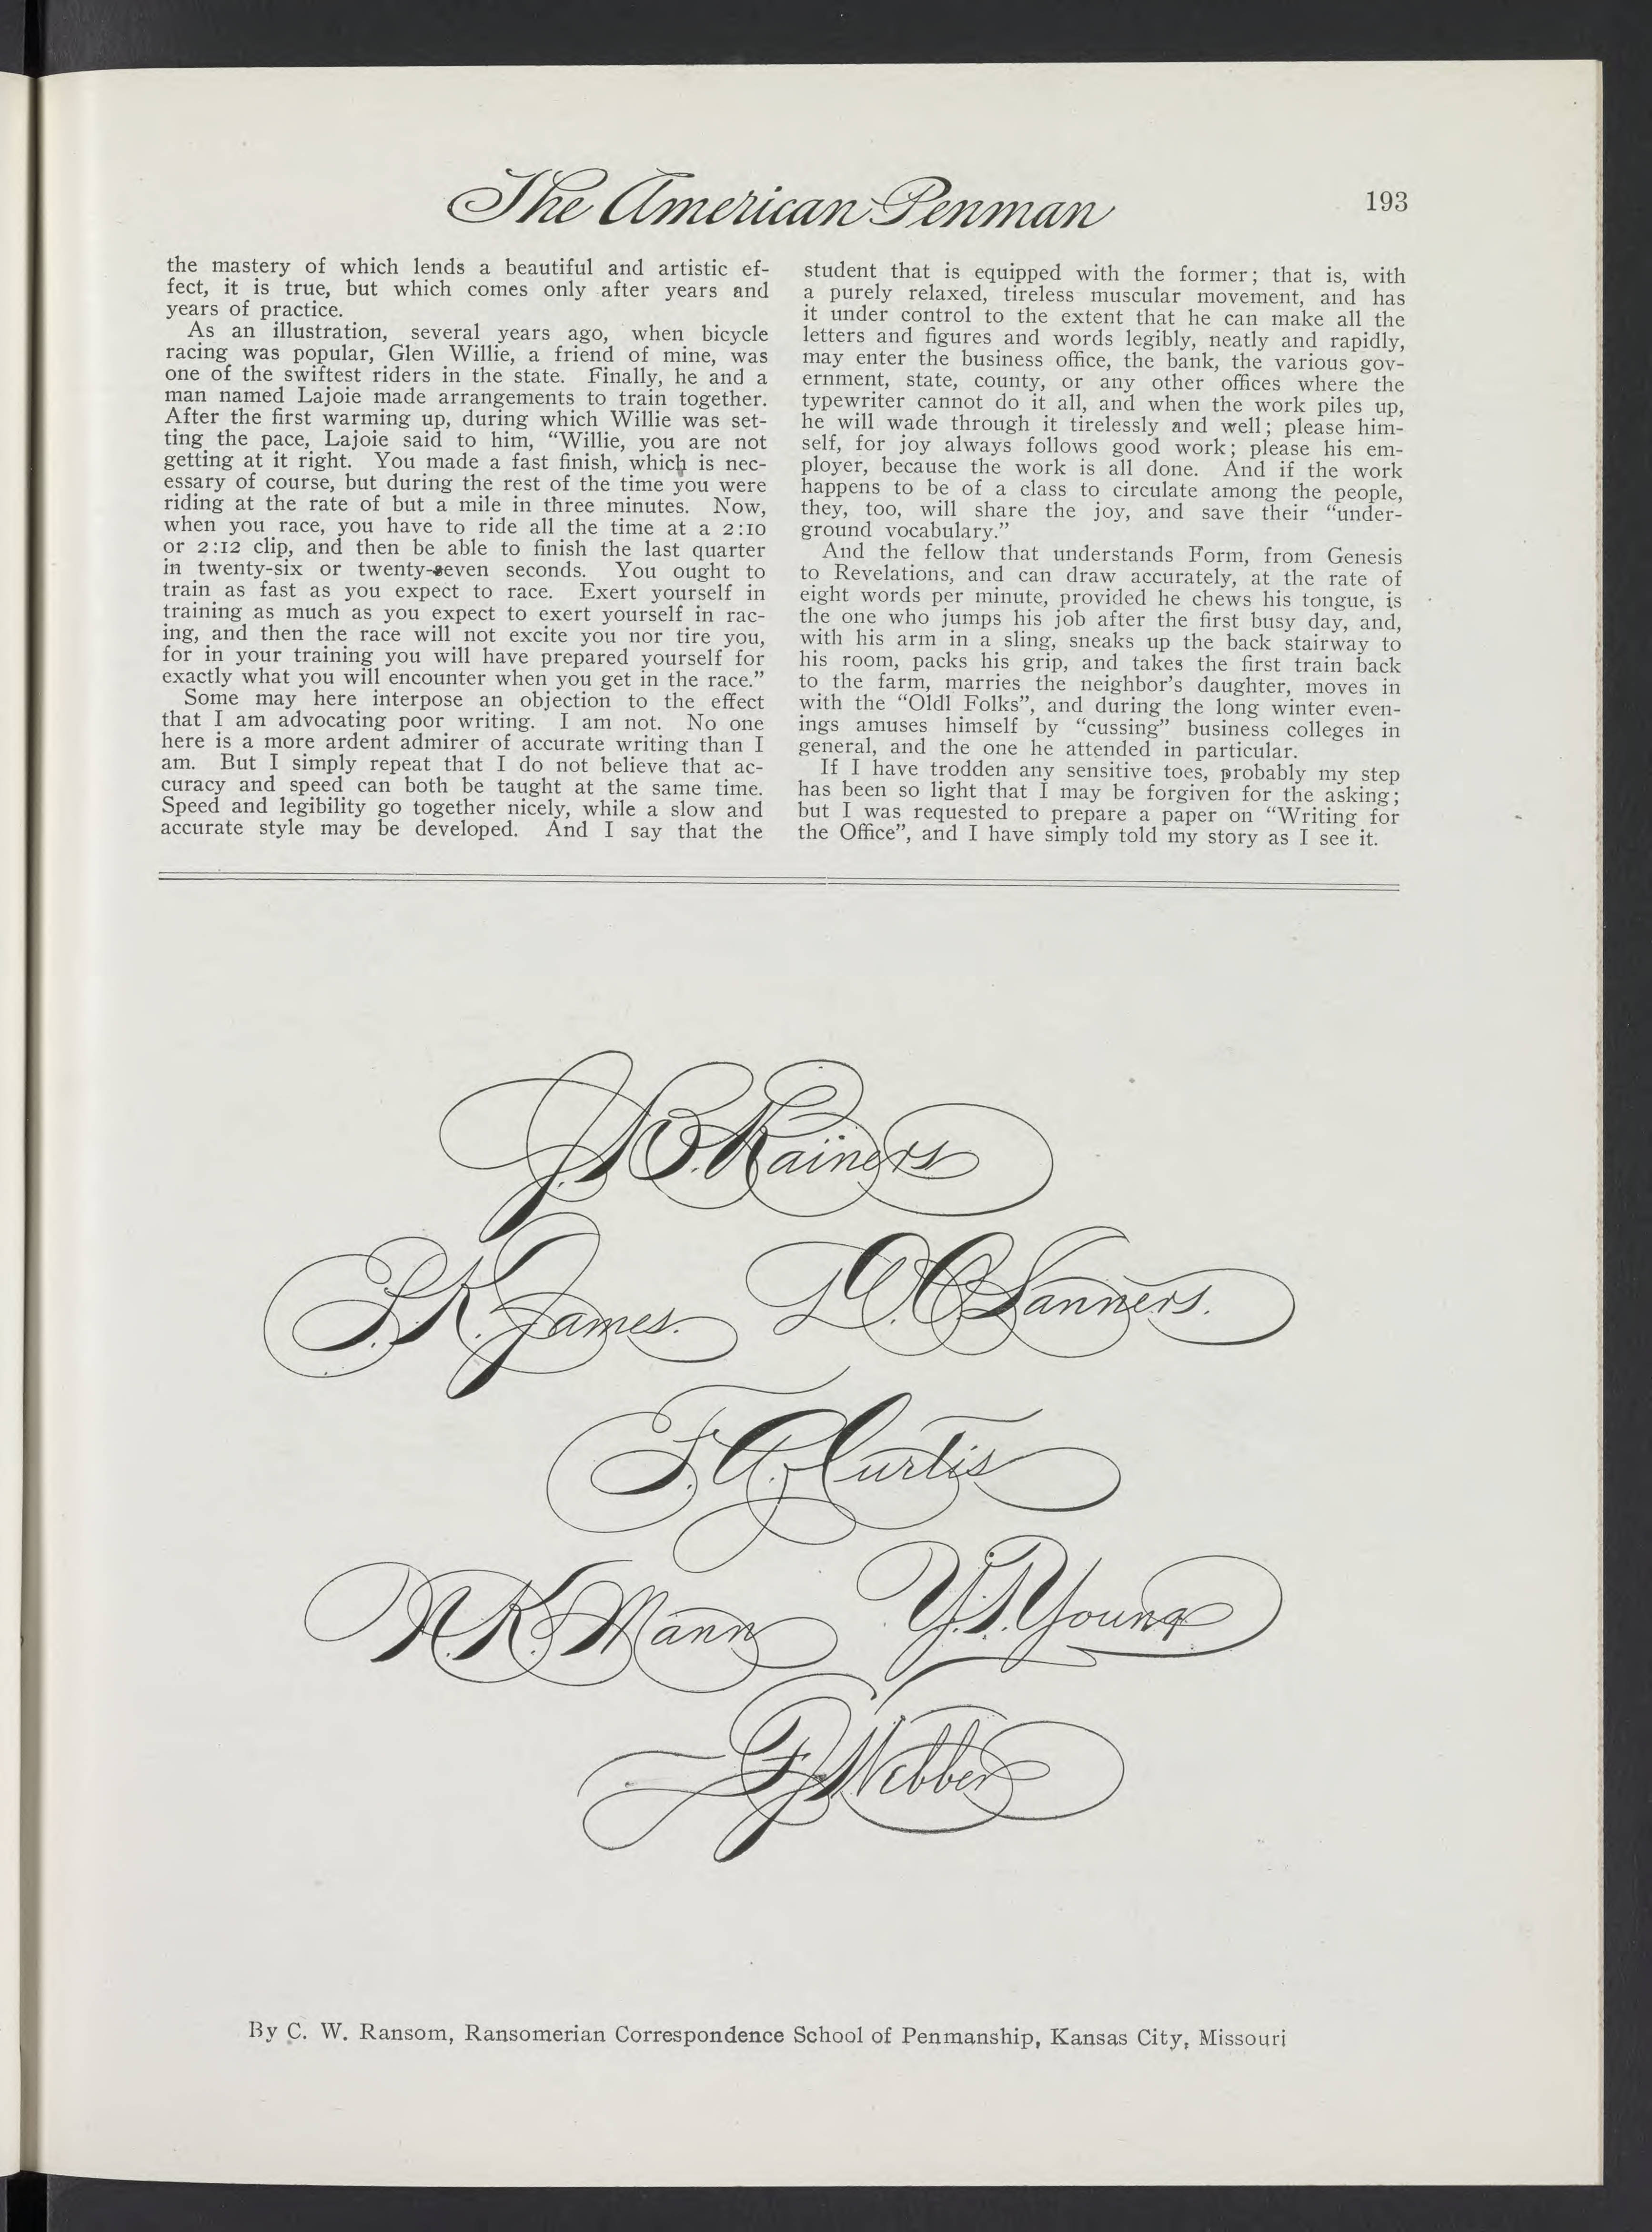 The American Penman
193
the mastery of which lends a beautiful and artistic ef-
fect, it is true, but which comes only after years and
years of practice.
As an illustration, several years ago, when bicycle
racing was popular, Glen Willie, a friend of mine, was
one of the swiftest riders in the state. Finally, he and a
man named Lajoie made arrangements to train together.
After the first warming up, during which Willie was set-
ting the pace, Lajoie said to him, “Willie, you are not
getting at it right. You made a fast finish, which is nec-
essary of course, but during the rest of the time you were
riding at the rate of but a mile in three minutes. Now,
when you race, you have to ride all the time at a 2:10
or 2:12 clip, and then be able to finish the last quarter
in twenty-six or twenty-seven seconds. You ought to
train as fast as you expect to race. Exert yourself in
training as much as you expect to exert yourself in rac-
ing, and then the race will not excite you nor tire you,
for in your training you will have prepared yourself for
exactly what you will encounter when you get in the race.”
Some may here interpose an objection to the effect
that I am advocating poor writing. I am not. No one
here is a more ardent admirer of accurate writing than I
am. But I simply repeat that I do not believe that ac-
curacy and speed can both be taught at the same time.
Speed and legibility go together nicely, while a slow and
accurate style may be developed. And I say that the
student that is equipped with the former; that is, with
a purely relaxed, tireless muscular movement, and has
it under control to the extent that he can make all the
letters and figures and words legibly, neatly and rapidly,
may enter the business office, the bank, the various gov-
ernment, state, county, or any other offices where the
typewriter cannot do it all, and when the work piles up,
he will wade through it tirelessly and well; please him-
self, for joy always follows good work; please his em-
ployer, because the work is all done. And if the work
happens to be of a class to circulate among the people,
they, too, will share the joy, and save their “under-
ground vocabulary.”
And the fellow that understands Form, from Genesis
to Revelations, and can draw accurately, at the rate of
eight words per minute, provided he chews his tongue, is
the one who jumps his job after the first busy day, and,
with his arm in a sling, sneaks up the back stairway to
his room, packs his grip, and takes the first train back
to the farm, marries the neighbor’s daughter, moves in
with the “Oldl Folks”, and during the long winter even-
ings amuses himself by “cussing” business colleges in
general, and the one he attended in particular.
If I have trodden any sensitive toes, probably my step
has been so light that I may be forgiven for the asking;
but I was requested to prepare a paper on “Writing for
the Office”, and I have simply told my story as I see it.
J. B. Rainers
James.
Sanners.
F. A. Curtis
N. K. Mann
Young
Webber
By C. W. Ransom, Ransomerian Correspondence School of Penmanship, Kansas City, Missouri